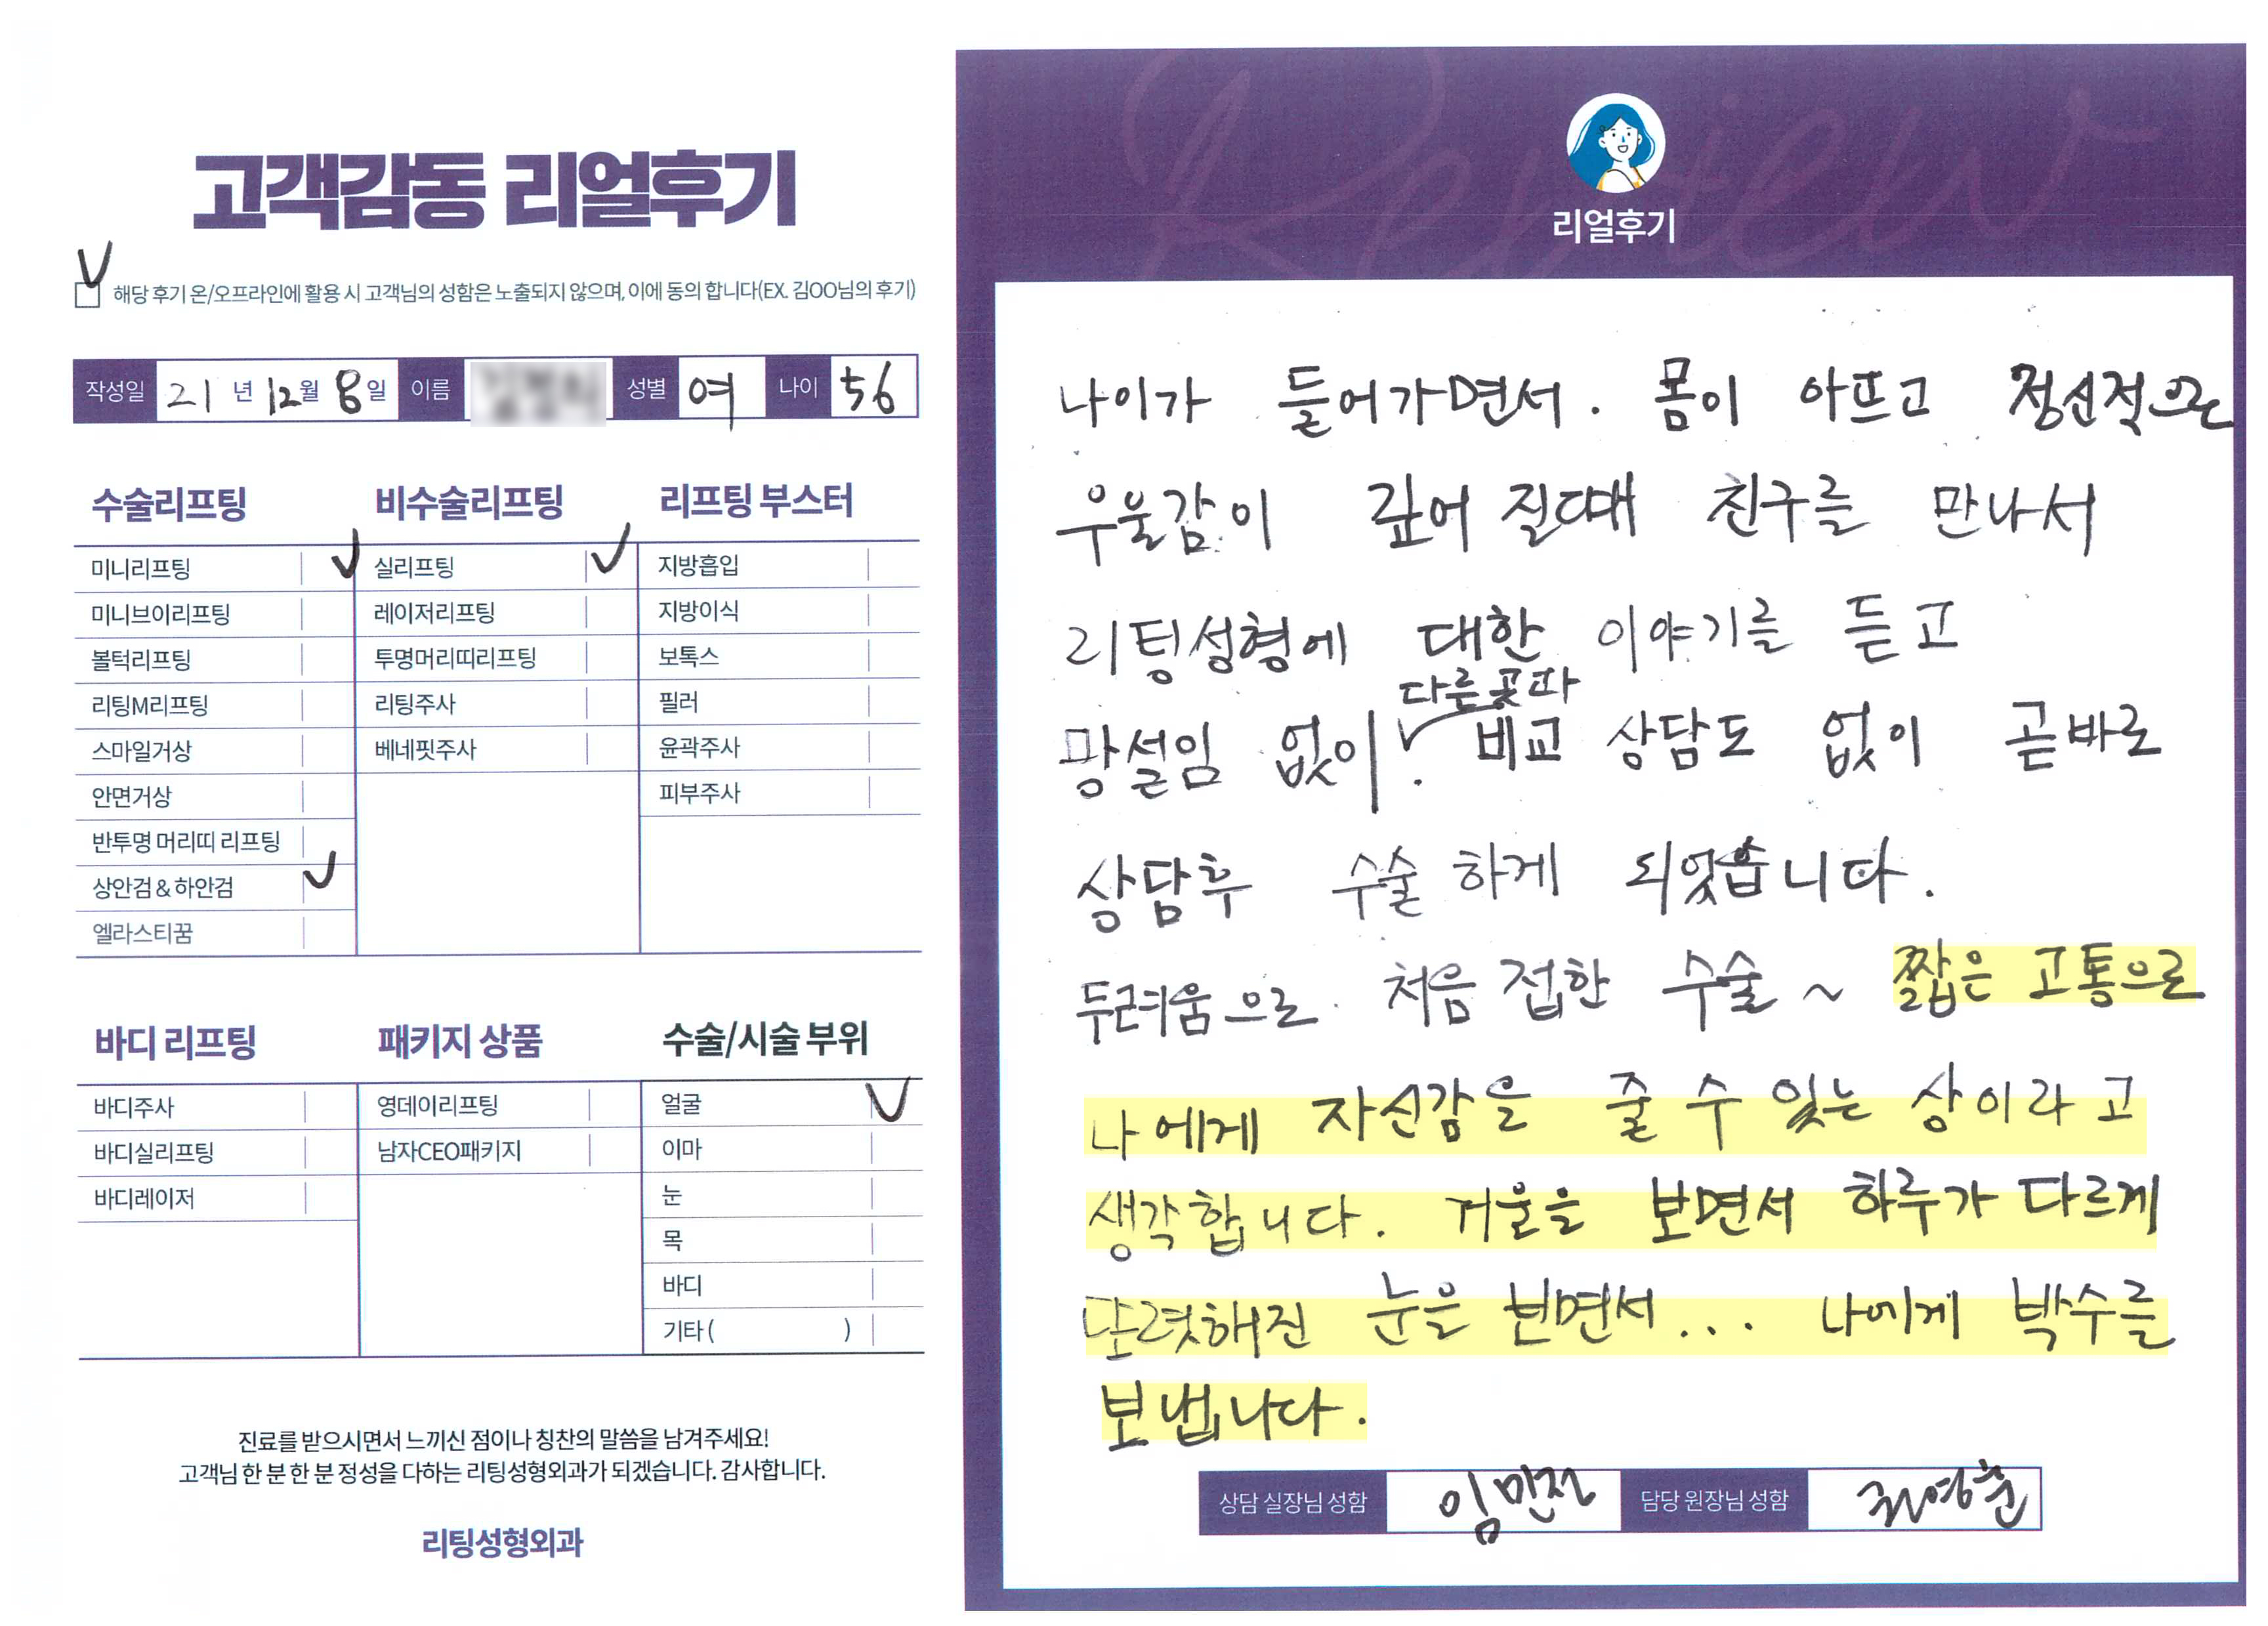 고객감동 리얼후기
해당 후기 온/오프라인에 활용 시 고객님의 성함은 노출되지 않으며, 이에 동의 합니다(EX. 김OO님의 후기)
작성일 21 년 12 월 8 일 이름 성별 여 나이 56
수술리프팅
미니리프팅
미니브이리프팅
볼턱리프팅
리팅M리프팅
스마일거상
안면거상
반투명 머리띠 리프팅
상안검 & 하안검
엘라스티꿈
비수술리프팅
실리프팅
레이저리프팅
투명머리띠리프팅
리팅주사
베네핏주사
리프팅 부스터
지방흡입
지방이식
보톡스
필러
윤곽주사
피부주사
바디 리프팅
바디주사
바디실리프팅
바디레이저
패키지 상품
영데이리프팅
남자CEO패키지
수술/시술 부위
얼굴
이마
눈
목
바디
기타 ( )
진료를 받으시면서 느끼신 점이나 칭찬의 말씀을 남겨주세요!
고객님 한 분 한 분 정성을 다하는 리팅성형외과가 되겠습니다. 감사합니다.
리팅성형외과
Review
리얼후기
나이가 들어가면서. 몸이 아프고 정신적으로
우울감이 깊어 질때 친구를 만나서
리팅성형에 대한 이야기를 듣고
다른곳과
망설임 없이. 비교 상담도 없이 곧바로
상담후 수술 하게 되었습니다.
두려움으로 처음 접한 수술 ~ 짧은 고통으로
나에게 자신감을 줄 수 있는 상이라고
생각합니다. 거울을 보면서 하루가 다르게
또렷해진 눈을 보면서... 나에게 박수를
보냅니다.
상담 실장님 성함 임민전 담당 원장님 성함